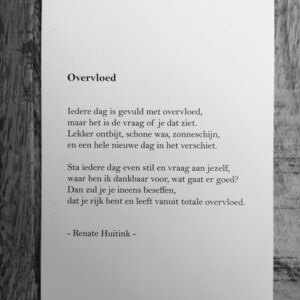 Overvloed
Iedere dag is gevuld met overvloed,
maar het is de vraag of je dat ziet.
Lekker ontbijt, schone was, zonneschijn,
en een hele nieuwe dag in het verschiet.
Sta iedere dag even stil en vraag aan jezelf,
waar ben ik dankbaar voor, wat gaat er goed?
Dan zul je je ineens beseffen,
dat je rijk bent en leeft vanuit totale overvloed.
~ Renate Huitink ~